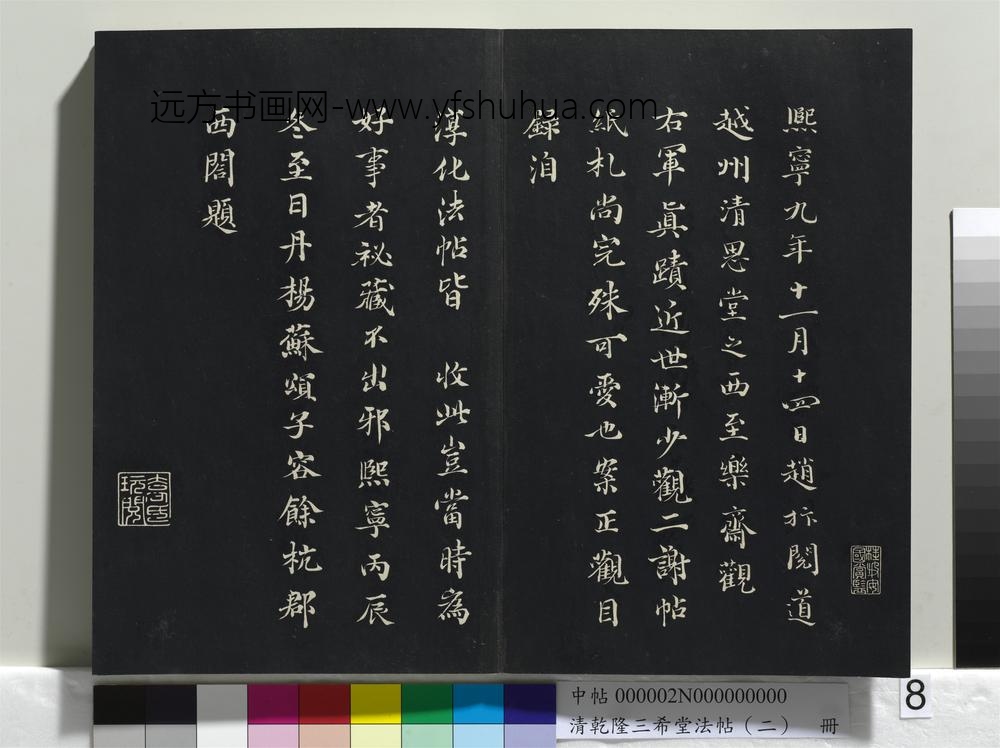 熙寧九年十一月十四日趙抃閱道
越州清思堂之西至樂齋觀
右軍眞蹟近世漸少觀二謝帖
紙札尚完殊可愛也案正觀目
錄洎
淳化法帖皆 收此豈當時為
好事者祕藏不出邪熙寧丙辰
冬至日丹楊蘇頌子容餘杭郡
西閤題
远方书画网-www.yfshuhua.com
中帖 000002N000000000
清乾隆三希堂法帖（二） 冊
8